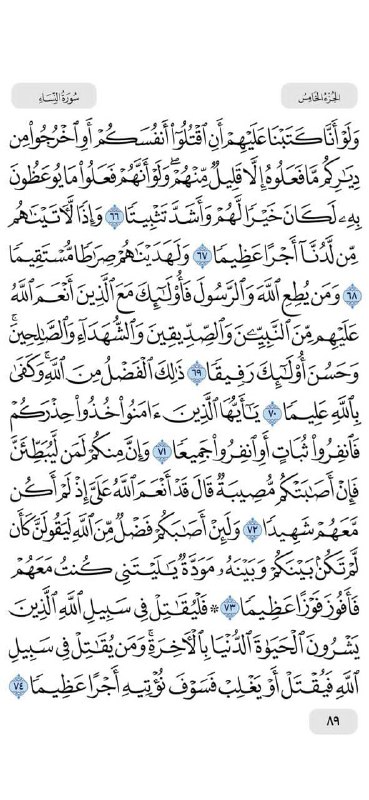 الجزء الخامس
سورة النساء
وَلَوْ أَنَّا كَتَبْنَا عَلَيْهِمْ أَنِ ٱقْتُلُوٓا۟ أَنفُسَكُمْ أَوِ ٱخْرُجُوا۟ مِن
دِيَـٰرِكُم مَّا فَعَلُوهُ إِلَّا قَلِيلٌ مِّنْهُمْ ۖ وَلَوْ أَنَّهُمْ فَعَلُوا۟ مَا يُوعَظُونَ
بِهِۦ لَكَانَ خَيْرًا لَّهُمْ وَأَشَدَّ تَثْبِيتًا ٦٦ وَإِذًا لَّـَٔاتَيْنَـٰهُم
مِّن لَّدُنَّآ أَجْرًا عَظِيمًا ٦٧ وَلَهَدَيْنَـٰهُمْ صِرَٰطًا مُّسْتَقِيمًا
٦٨ وَمَن يُطِعِ ٱللَّهَ وَٱلرَّسُولَ فَأُو۟لَـٰٓئِكَ مَعَ ٱلَّذِينَ أَنْعَمَ ٱللَّهُ
عَلَيْهِم مِّنَ ٱلنَّبِيِّـۧنَ وَٱلصِّدِّيقِينَ وَٱلشُّهَدَآءِ وَٱلصَّـٰلِحِينَ ۚ
وَحَسُنَ أُو۟لَـٰٓئِكَ رَفِيقًا ٦٩ ذَٰلِكَ ٱلْفَضْلُ مِنَ ٱللَّهِ ۚ وَكَفَىٰ
بِٱللَّهِ عَلِيمًا ٧٠ يَـٰٓأَيُّهَا ٱلَّذِينَ ءَامَنُوا۟ خُذُوا۟ حِذْرَكُمْ
فَٱنفِرُوا۟ ثُبَاتٍ أَوِ ٱنفِرُوا۟ جَمِيعًا ٧١ وَإِنَّ مِنكُمْ لَمَن لَّيُبَطِّئَنَّ
فَإِنْ أَصَـٰبَتْكُم مُّصِيبَةٌ قَالَ قَدْ أَنْعَمَ ٱللَّهُ عَلَىَّ إِذْ لَمْ أَكُن
مَّعَهُمْ شَهِيدًا ٧٢ وَلَئِنْ أَصَـٰبَكُمْ فَضْلٌ مِّنَ ٱللَّهِ لَيَقُولَنَّ كَأَن
لَّمْ تَكُنۢ بَيْنَكُمْ وَبَيْنَهُۥ مَوَدَّةٌ يَـٰلَيْتَنِى كُنتُ مَعَهُمْ
فَأَفُوزَ فَوْزًا عَظِيمًا ٧٣ ۞ فَلْيُقَـٰتِلْ فِى سَبِيلِ ٱللَّهِ ٱلَّذِينَ
يَشْرُونَ ٱلْحَيَوٰةَ ٱلدُّنْيَا بِٱلْـَٔاخِرَةِ ۚ وَمَن يُقَـٰتِلْ فِى سَبِيلِ
ٱللَّهِ فَيُقْتَلْ أَوْ يَغْلِبْ فَسَوْفَ نُؤْتِيهِ أَجْرًا عَظِيمًا ٧٤
٨٩